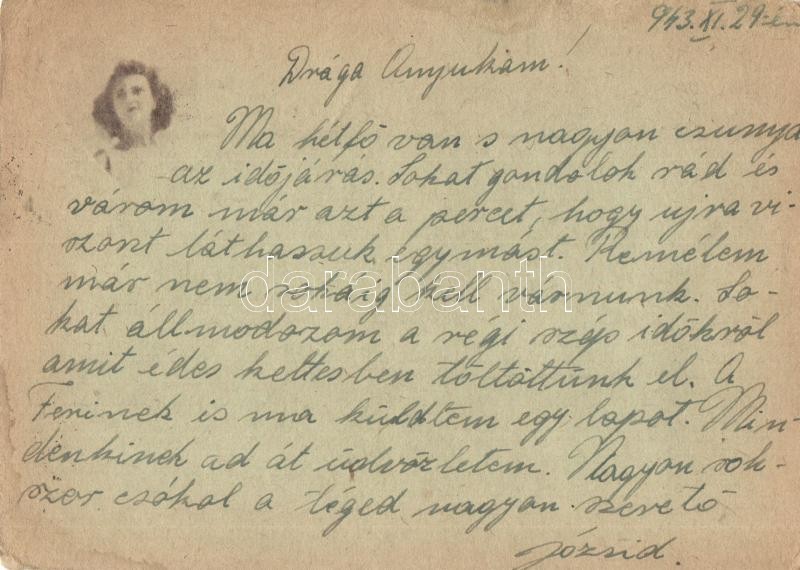 943. XI. 29-én
Drága Anyukám!
Ma hétfő van s nagyon csunya
az időjárás. Sokat gondolok rád és
várom már azt a percet, hogy ujra vi-
szont láthassuk egymást. Remélem
már nem sokáig kell várnunk. So-
kat állmodozom a régi szép időkről
amit édes kettesben töltöttünk el. A
Ferinek is ma küldtem egy lapot. Min-
denkinek ad át üdvözletem. Nagyon sok-
szor csókol a téged nagyon szerető
Józsid.
darabanth